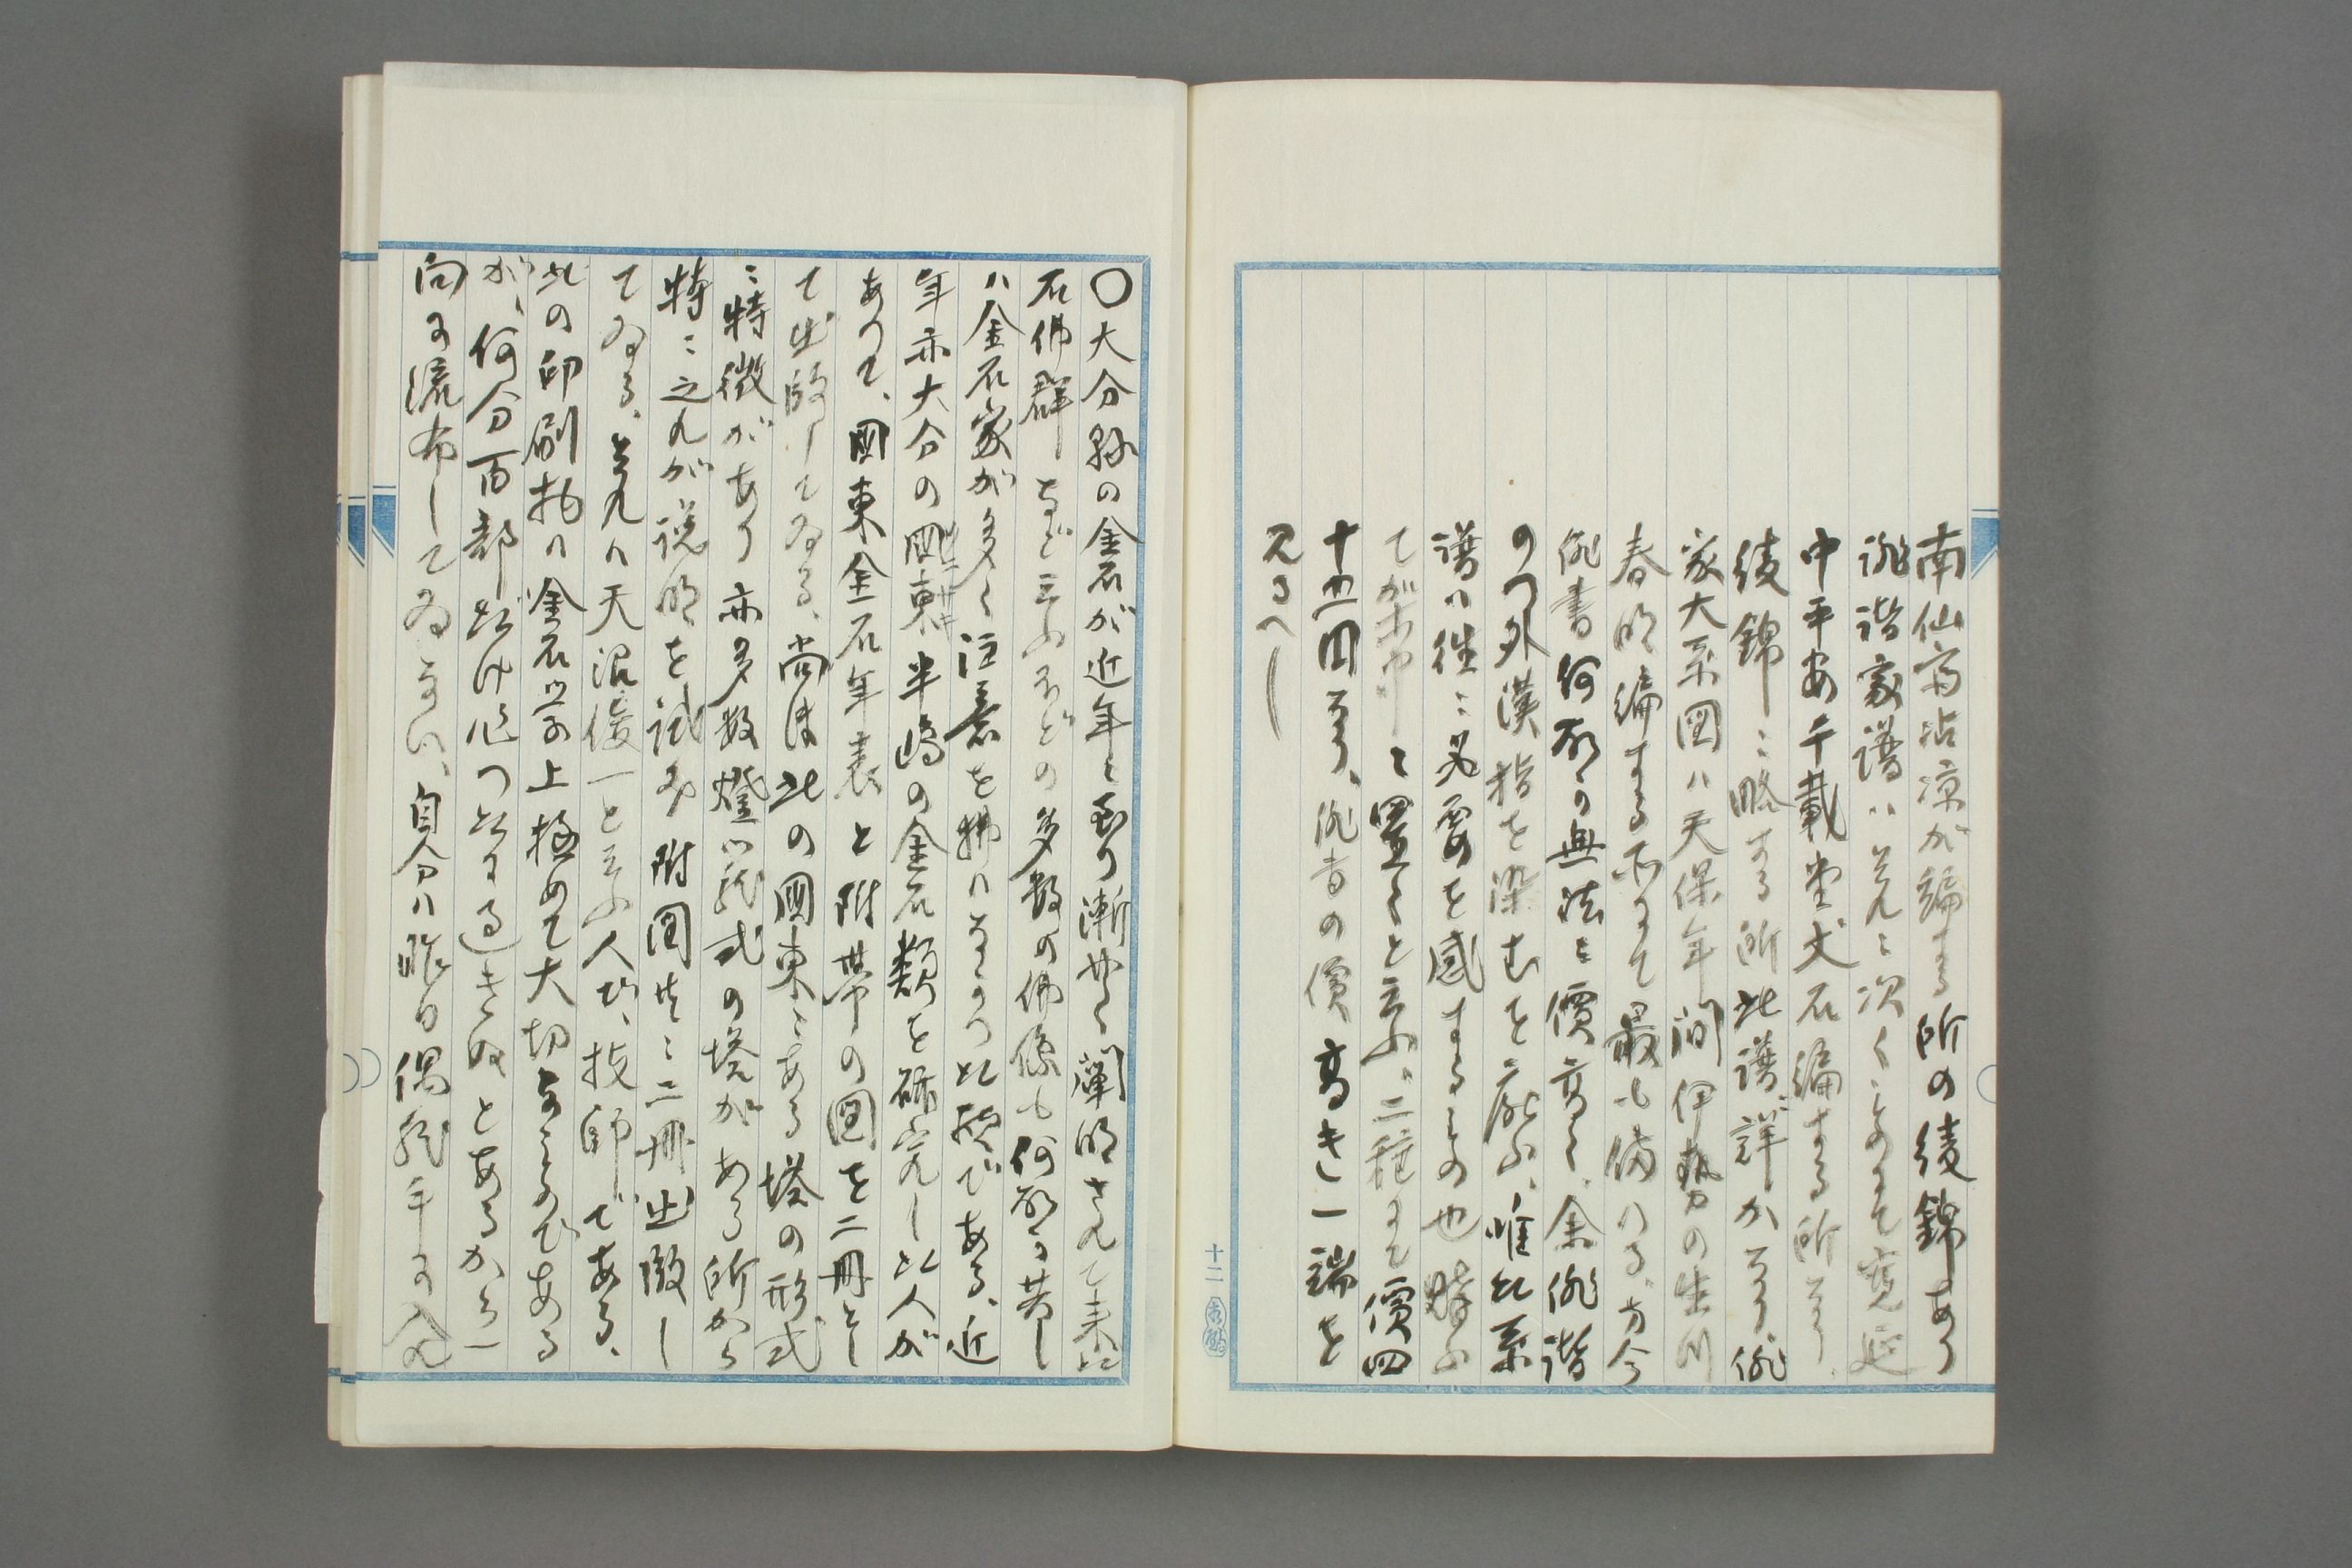 南仙斎沾涼が編する所の綾錦あり
誹諧家譜ハそれに次くものにて寛延
中平安千載堂丈石編する所なり
綾錦に略する所此譜詳かなり、俳
家大系図ハ天保年間伊勢の生川
春明編する所にて最も備ハる、方今
俳書何故か無法に價高く、余俳諧
の外漢指を染むを厭ふ、唯此系
譜ハ往々必要を感するもの也購ふ
て置くと云ふ、二種にて價四
十五円なり、俳書の價高き一端を
見るべし
〇大分縣の金石が近年に到り漸やく闡明されて来た
石佛群など云ふほどの多数の佛像も何故か昔し
ハ金石家が多く注意を拂ハなかった様である、近
年亦大分の國東半島の金石類を研究した人が
ありて、國東金石年表と附帯の図を二冊とし
て出版してゐる、尚ほ此の國東にある塔の形式
に特徴があり亦多数燈籠式の塔がある所から
特に之れが説明を試み附図共に二冊出版し
てゐる、それハ天沼俊一と云ふ人で、技師である、
此の印刷物ハ金石学上極めて大切なものである
が、何分百部だけ作つたに過きぬとあるから一
向に流布してゐない、自分ハ昨日偶然手に入れ
十二